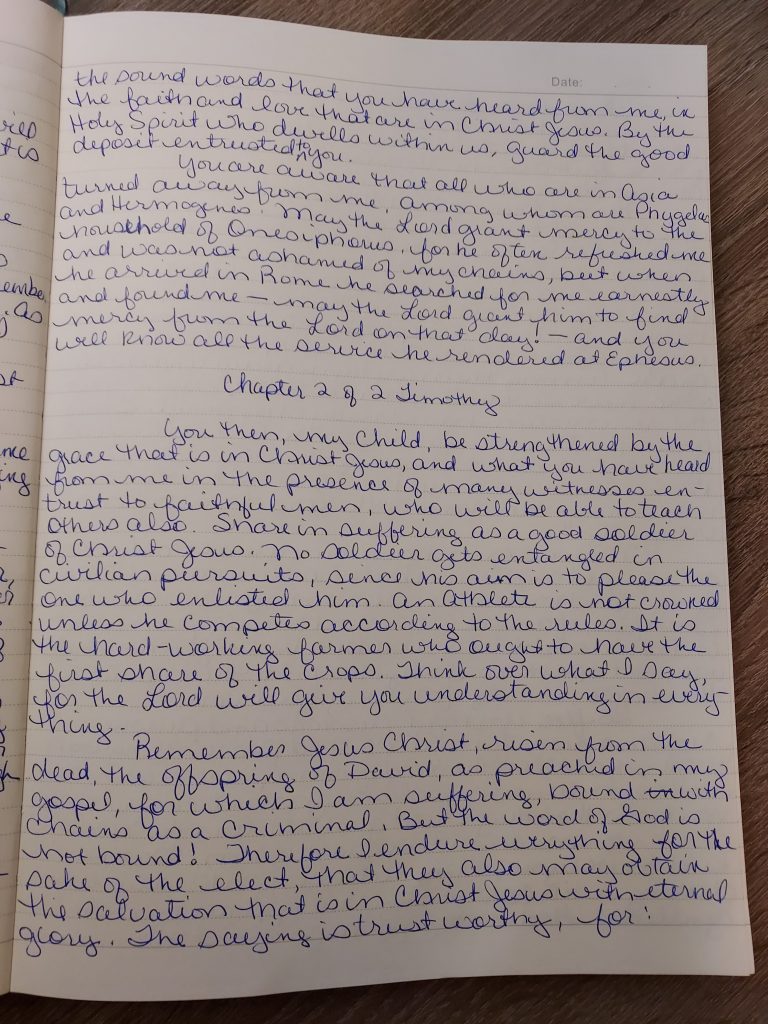 Date:
the sound words that you have heard from me, in
the faith and love that are in Christ Jesus. By the
Holy Spirit who dwells within us, guard the good
deposit entrusted to you.
You are aware that all who are in Asia
turned away from me, among whom are Phygelus
and Hermogenes. May the Lord grant mercy to the
household of Onesiphorus, for he often refreshed me
and was not ashamed of my chains, but when
he arrived in Rome he searched for me earnestly
and found me — may the Lord grant him to find
mercy from the Lord on that day! — and you
will know all the service he rendered at Ephesus.
Chapter 2 of 2 Timothy
You then, my child, be strengthened by the
grace that is in Christ Jesus, and what you have heard
from me in the presence of many witnesses en-
trust to faithful men, who will be able to teach
others also. Share in suffering as a good soldier
of Christ Jesus. No soldier gets entangled in
civilian pursuits, since his aim is to please the
one who enlisted him. An athlete is not crowned
unless he competes according to the rules. It is
the hard-working farmer who ought to have the
first share of the crops. Think over what I say,
for the Lord will give you understanding in every-
thing.
Remember Jesus Christ, risen from the
dead, the offspring of David, as preached in my
gospel, for which I am suffering, bound in with
chains as a criminal. But the word of God is
not bound! Therefore I endure everything for the
sake of the elect, that they also may obtain
the salvation that is in Christ Jesus with eternal
glory. The saying is trust worthy, for: